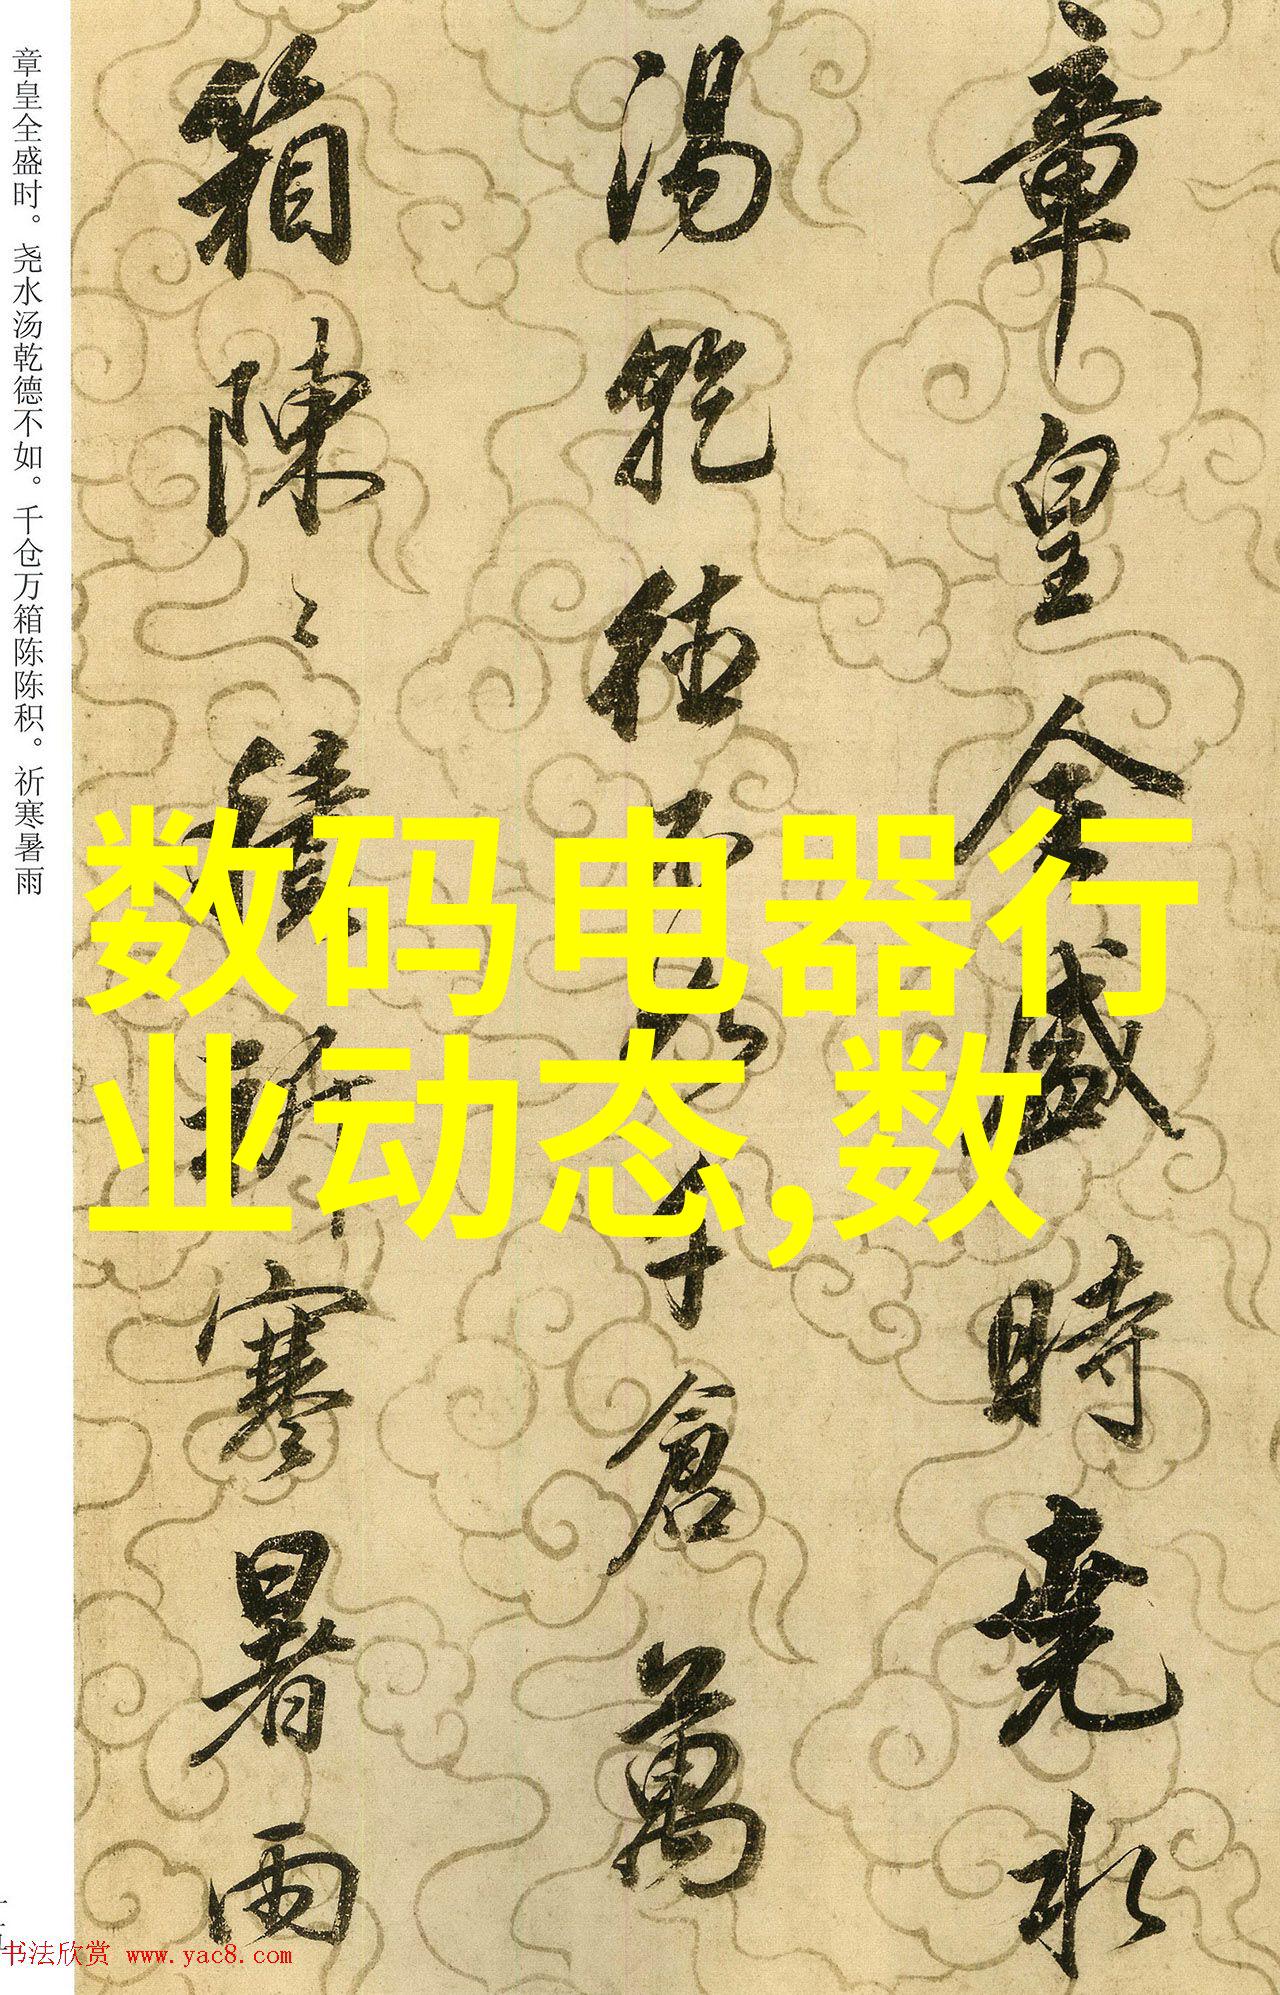 章皇全盛時堯水
湯乾德不如千倉萬
箱陳〻積祈寒暑雨
章皇全盛时。尧水汤乾德不如。千仓万箱陈陈积。祈寒暑雨
数码电器行
业动态,数
书法欣赏 www.yac8.com